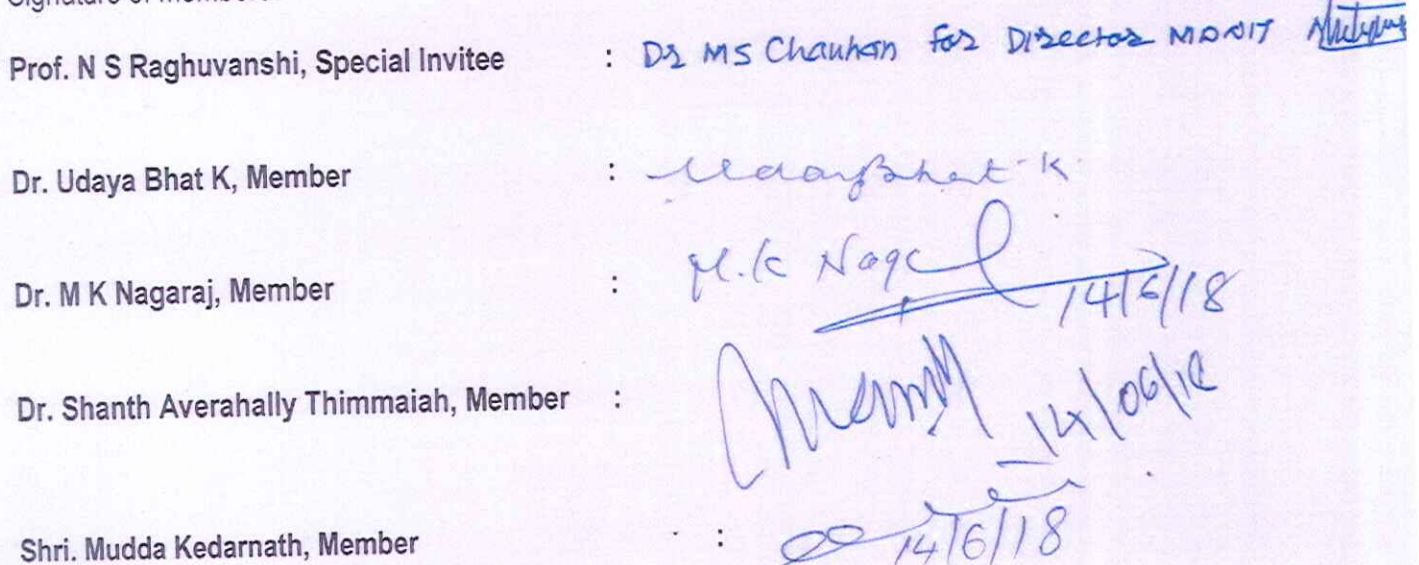 Signature of Members
Prof. N S Raghuvanshi, Special Invitee : Dr MS Chauhan for Director MANIT
Dr. Udaya Bhat K, Member : UdayBhat K
Dr. M K Nagaraj, Member : M.K Nag 14/6/18
Dr. Shanth Averahally Thimmaiah, Member : 14/06/18
Shri. Mudda Kedarnath, Member : 14/6/18